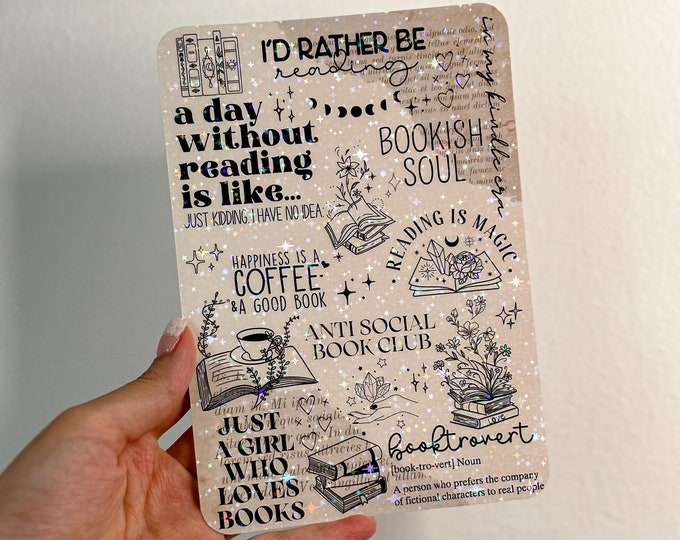 I'D RATHER BE
reading
in my kindle era
a day
without
reading
is like...
JUST KIDDING. I HAVE NO IDEA.
BOOKISH
SOUL
READING IS MAGIC
HAPPINESS IS A
COFFEE
& A GOOD BOOK
ANTI SOCIAL
BOOK CLUB
JUST
A GIRL
WHO
LOVES
BOOKS
LOVE
booktrovert
[book-tro-vert] Noun
A person who prefers the company
of fictional characters to real people